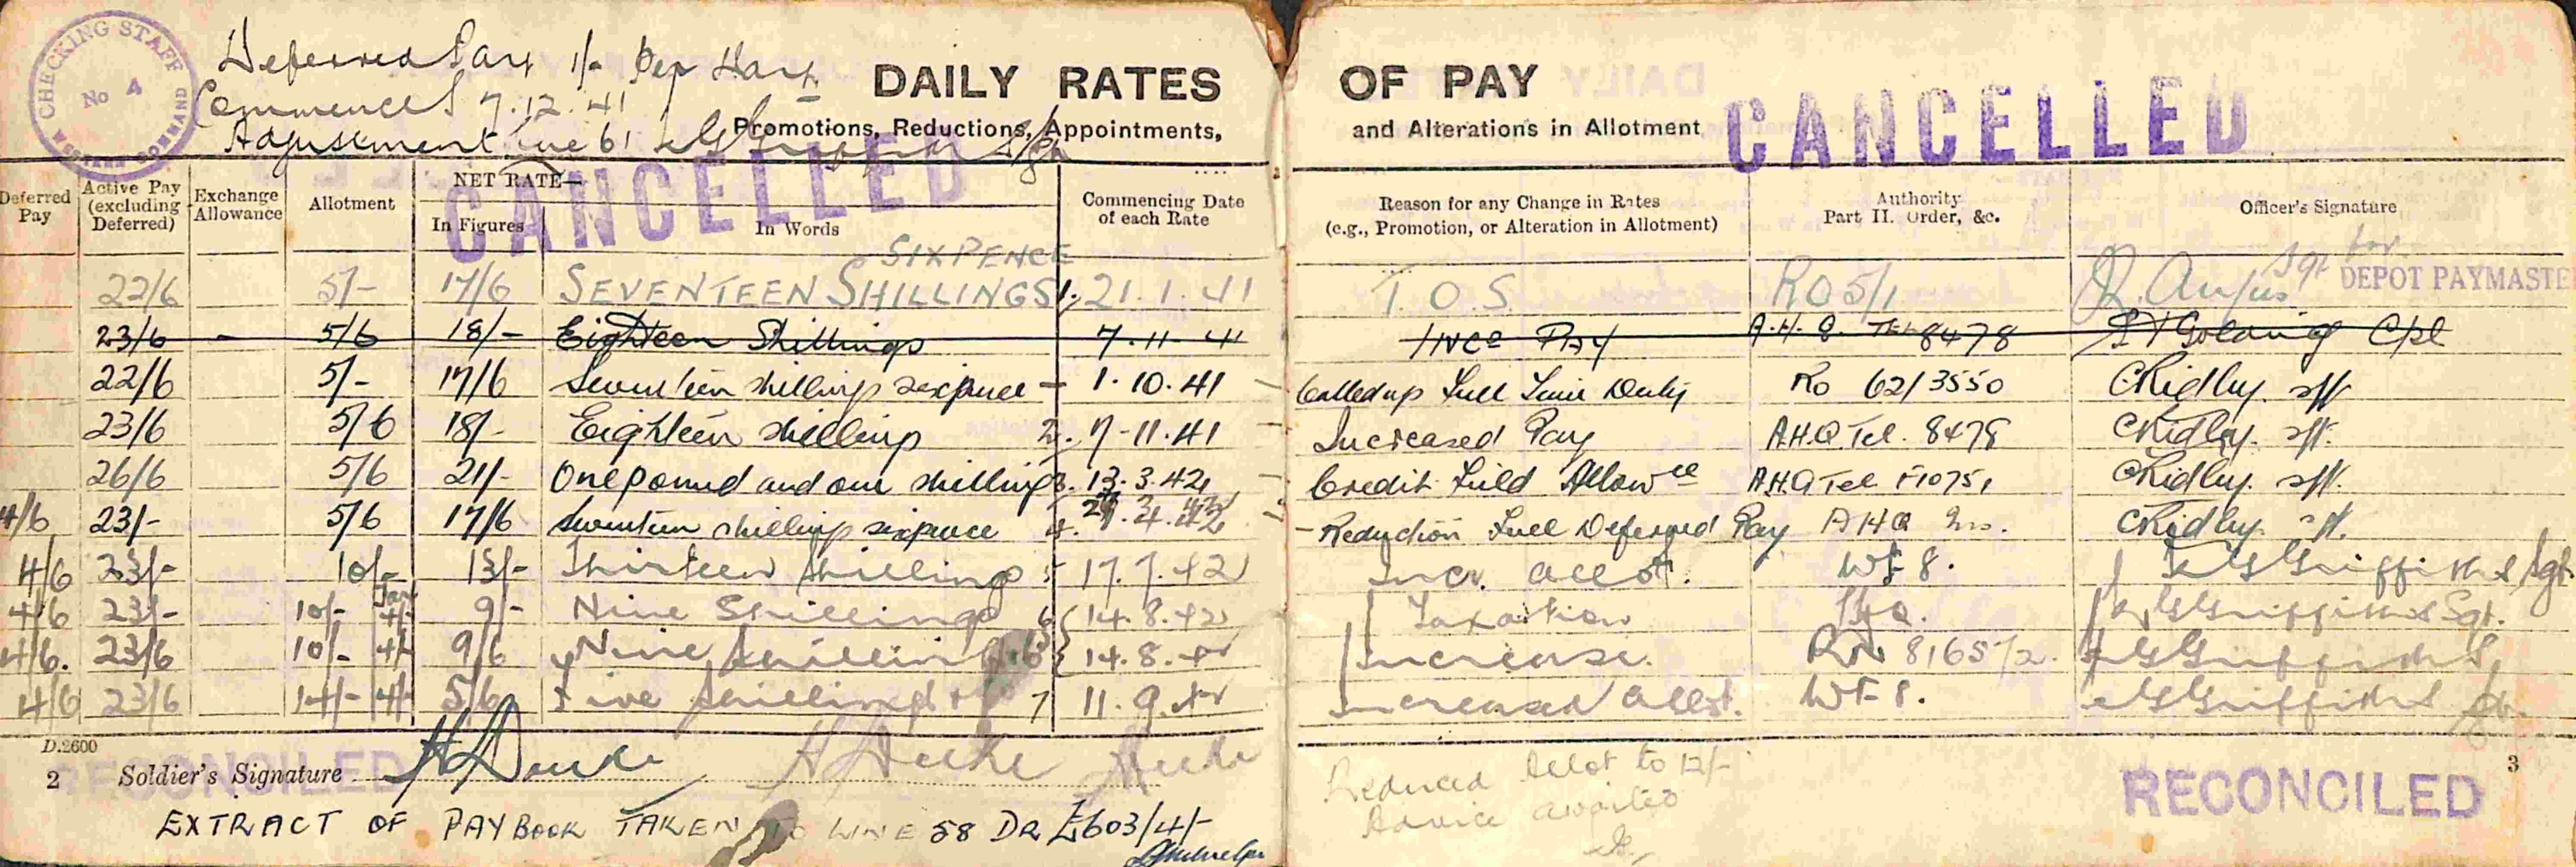 CHECKING STAFF
No 4
COMMAND
Deferred Pay 1/- per day
Commenced 7.12.41
Adjustment line 61
DAILY RATES OF PAY
Promotions, Reductions, Appointments, and Alterations in Allotment
CANCELLED
CANCELLED
Deferred Pay
Active Pay (excluding Deferred)
Exchange Allowance
Allotment
NET RATE—
In Figures
In Words
Commencing Date of each Rate
Reason for any Change in Rates (e.g., Promotion, or Alteration in Allotment)
Authority Part II. Order, &c.
Officer's Signature
22/6 5/- 17/6 SEVENTEEN SHILLINGS SIXPENCE 1. 21.1.41 T.O.S. RO 5/1 Angus Sgt for DEPOT PAYMASTE
23/6 - 5/6 18/- Eighteen Shillings 7-11-41 Ince Pay A.H.Q. Tel 8478 Golding Cpl
22/6 5/- 17/6 Seventeen shillings sixpence - 1.10.41 Called up Full Time Duty Ro 62/3550 CRidley
23/6 5/6 18/- Eighteen shillings 2. 7-11.41 Increased Pay A.H.Q. Tel. 8478 CRidley
26/6 5/6 21/- One pound and one shilling 3. 13.3.42 Credit Field Allowce A.H.Q Tel F10751 CRidley
4/6 23/- 5/6 17/6 Seventeen shillings sixpence 4. Reduction Full Deferred Pay AHQ Ins. CRidley
4/6 23/- 10/- 13/- Thirteen Shillings 5 17.7.42 Incr. allot. WF 8. Griffiths Sgt.
4/6 23/- 10/- Tax 4/- 9/- Nine Shillings 6 14.8.42 Taxation Griffiths Sgt.
4/6. 23/6 10/- 4/- 9/6 Nine Shillings 14.8.42 Increase. 81657/2. Griffiths
4/6 23/6 14/- 4/- 5/6 Five Shillings 7 11.9.42 Increased allot. WF 8. Griffiths
D.2600
2 Soldier's Signature
RECONCILED
Reduced Allot to 12/-
Advice awaited
3
RECONCILED
EXTRACT OF PAYBOOK TAKEN TO LINE 58 DR £603/4/-